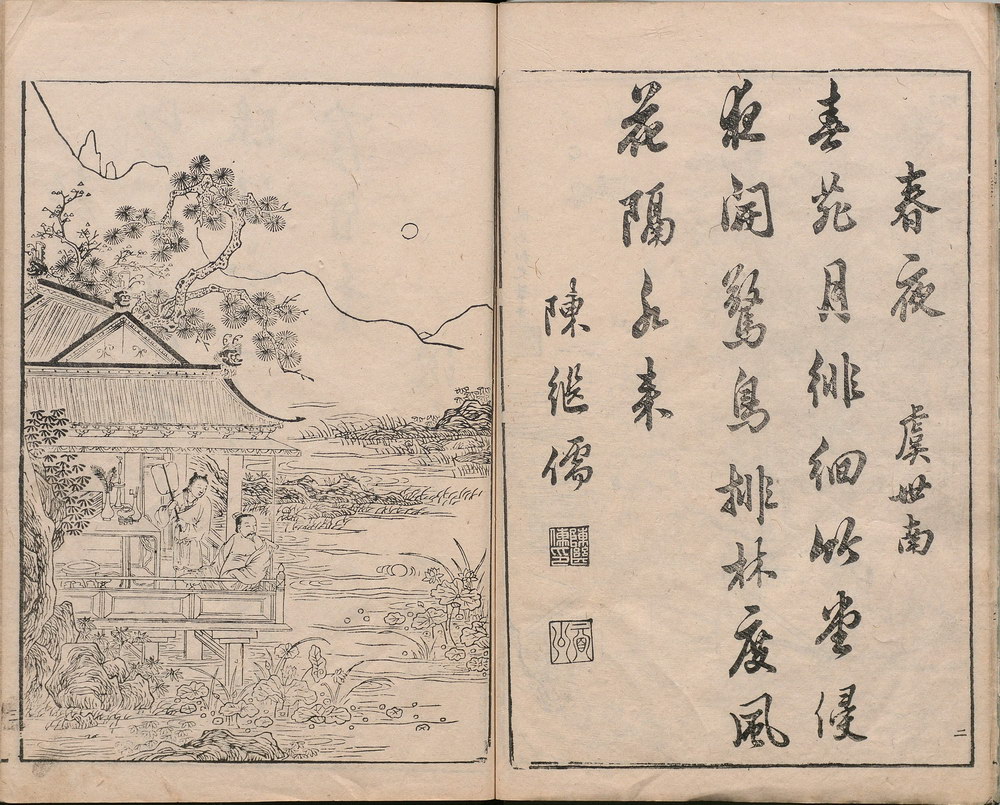 春夜 虞世南
春苑月徘徊竹堂侵
夜開驚鳥排林度風
花隔水來
陳継儒
陳繼儒印
眉公
二